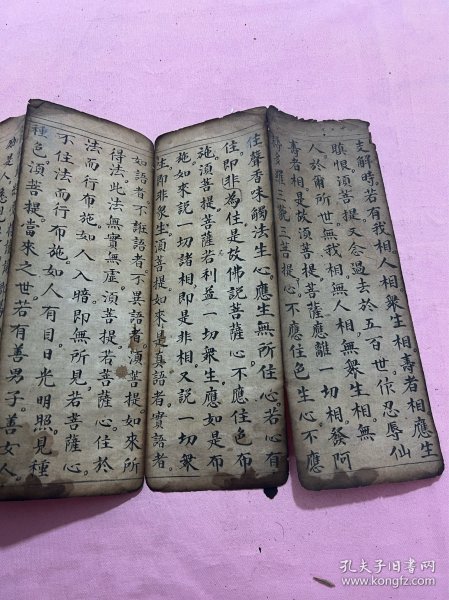 支解時。若有我相人相衆生相壽者相。應生
瞋恨。須菩提。又念過去於五百世。作忍辱仙
人。於爾所世。無我相。無人相。無衆生相。無
壽者相。是故須菩提。菩薩應離一切相。發阿
耨多羅三藐三菩提心。不應住色生心。不應
住聲香味觸法生心。應生無所住心。若心有
住。即非為住。是故佛說菩薩心。不應住色布
施。須菩提。菩薩若利益一切衆生。應如是布
施。如來說一切諸相。即是非相。又說一切衆
生。即非衆生。須菩提。如來是真語者。實語者。
如語者。不誑語者。不異語者。須菩提。如來所
得法。此法無實無虛。須菩提。若菩薩心住於
法。而行布施。如人入暗。即無所見。若菩薩心
不住法。而行布施。如人有目。日光明照。見種
種色。須菩提。當來之世。若有善男子。善女人。
孔夫子旧书网
www.kongfz.com